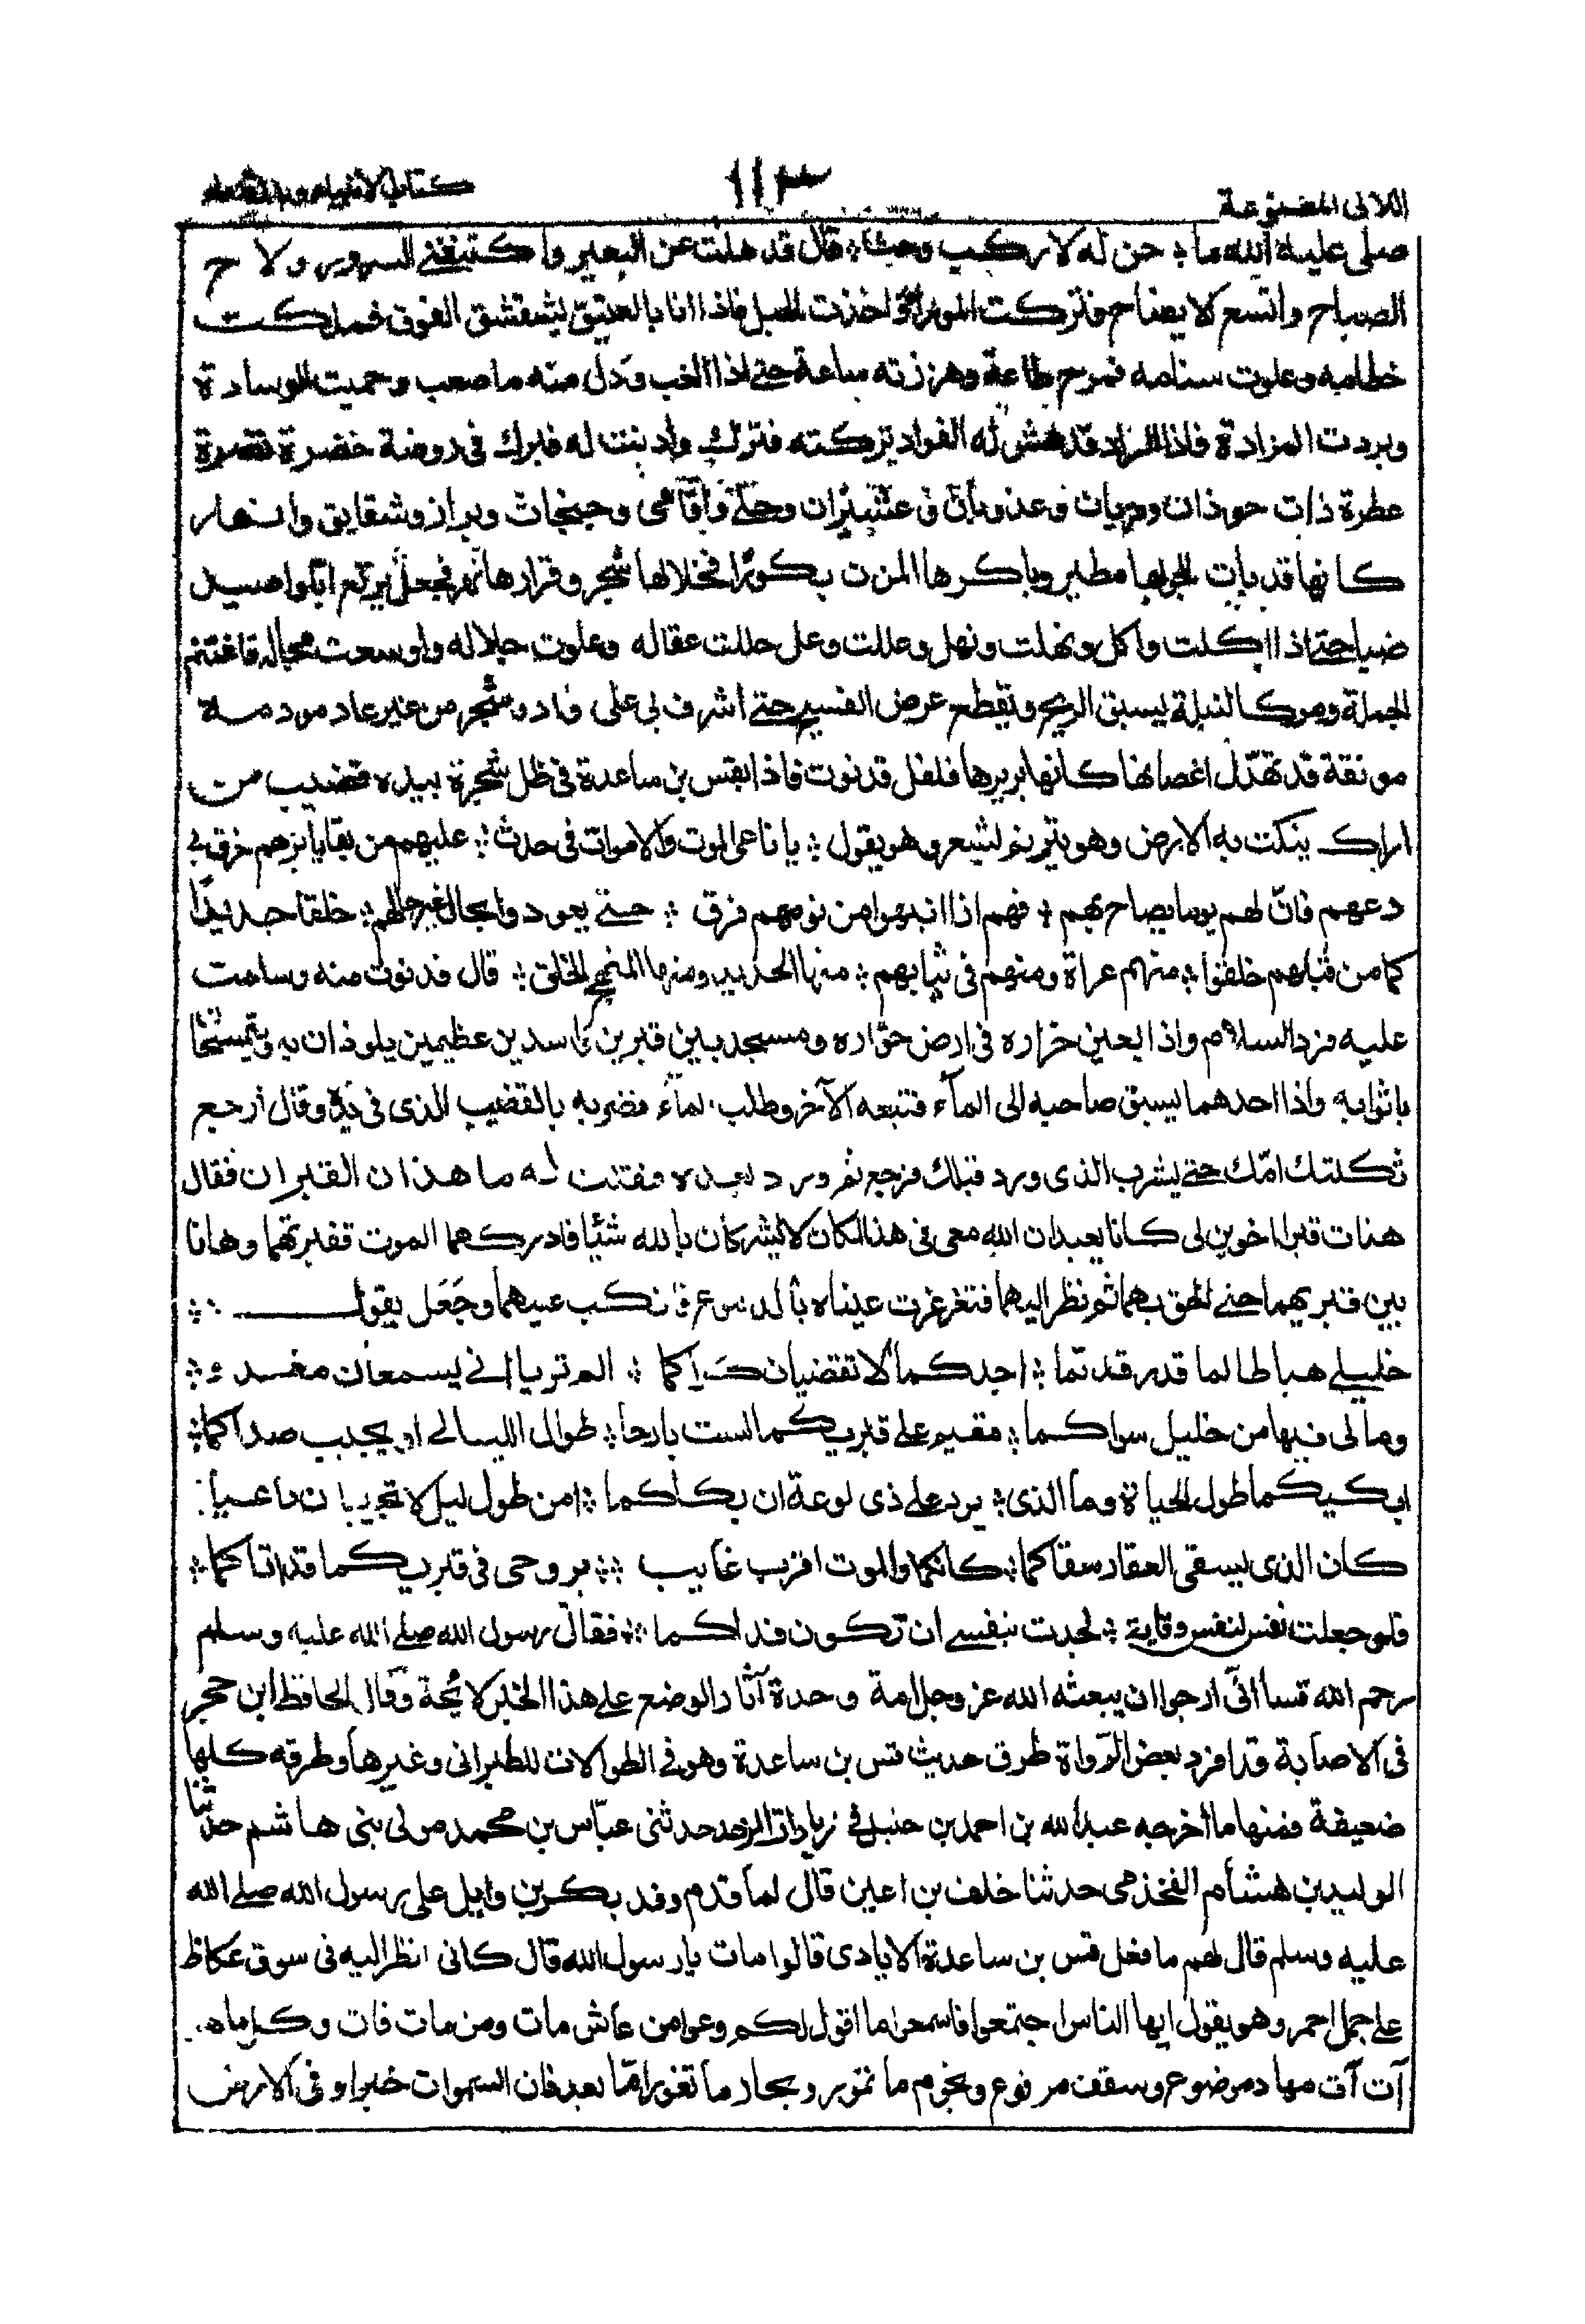 اللالى المصنوعة ١١٣ كتاب الانبياء والقدماء
صلى عليه الله ما ؞ حن له لا ركب وحث ؞ قال قد هلت عن البعير واكتنفنى السرور ولاح
الصباح واتسع الايضاح فتركت الموراء واخذت الجبل فاذا انا بالعنيق يشقشق النوق فملكت
خطامه وعلوت سنامه فمرح طاعة وهززته ساعة حتے اذا الغب وذل منه ما صعب وحميت الوسادة
وبردت المزادة فاذا الزاد قد هش له الفواد بتركته فترك واذنت له فبرك فى روضة خضرة نضرة
عطرة ذات حوذان وقربان وعنقران وعبيثران وحلى واقاحى وجنجاث وبرار وشقايق وانهار
كانها قد بات الجو بها مطير وباكرها المزن بكورا فخلالها شجر وقرارها نهر فجعل يرتع ابا واصيد
ضبا حتے اذا اكلت واكل ونهلت ونهل وعللت وعل حللت عقاله وعلوت جلاله واوسعت مجاله فاغتنم
الجملة ومر كالنبلة يسبق الريح ويقطع عرض الفسيح حتے اشرف بى على واد وشجر من غير عاد مورقة
مونقة قد تهدل اغصانها كانها بريرها فلفل قدنوت فاذا بقس بن ساعدة فى ظل شجرة بيده قضيب من
اراك ينكت به الارض وهو يترنم لشعر وهو يقول ؞ يا ناعى الموت والاموات فى جدث ؞ عليهم من بقايا بزهم خرق ؞
دعهم فان لهم يوما يصاح بهم ؞ فهم اذا انبهوا من نومهم فرق ؞ حتے يعودوا بحال غير حالهم ؞ خلقا جديدا
كما من قبلهم خلقوا ؞ منهم عراة ومنهم فى ثيابهم ؞ منها الجديد ومنها المنهج الخلق ؞ قال فدنوت منه وسلمت
عليه فرد السلام واذا بعين خراره فى ارض خواره ومسجد بين قبرين واسدين عظيمين يلوذان به ويتمسحان
باثوابه واذا احدهما يسبق صاحبه الى الماء فتبعه الآخر وطلب الماء فضربه بالقضيب الذى فى يده وقال أرجع
ثكلتك امك حتے يشرب الذى ورد قبلك فرجع ثم ورد بعده فقلت له ما هذان القبران فقال
هذان قبرا اخوين لى كانا يعبدان الله معى فى هذا المكان لا يشركان بالله شئيا فادركهما الموت فقبرتهما وها انا
بين قبريهما حتے الحق بهما ثم نظر اليهما فتغرغرت عيناه بالدموع فانكب عليهما وجعل يقول ؞
خليلے هبا طالما قد رقدتما ؞ اجدكما لا تقضيان كراكما ؞ الم تريا انے بسمعان مفرد ؞
وما لى فيها من خليل سواكما ؞ مقيم علے قبريكما لست بارحا ؞ طوال الليالے او يجيب صداكما ؞
ابكيكما طول الحياة وما الذى ؞ يرد علے ذى لوعة ان بكاكما ؞ امن طول ليل لا تجيبان داعيا ؞
كان الذى يسقى العقار سقاكما ؞ كانكما والموت اقرب غايب ؞ بروحى فى قبريكما قد اتاكما ؞
فلو جعلت نفس لنفس وقاية ؞ لجدت بنفسے ان تكون فداكما ؞ فقال رسول الله صلے الله عليه وسلم
رحم الله قسا انى ارجوا ان يبعثه الله عز وجل امة وحدة آثار الوضع علے هذا الخبر لائحة وقال الحافظ ابن حجر
فى الاصابة قد افرد بعض الرواة طرق حديث قس بن ساعدة وهو فے الطوالات للطبرانى وغيرها وطرقه كلها
ضعيفة فمنها ما أخرجه عبد الله بن احمد بن حنبل فے زيادات الزهد حدثنى عباس بن محمد مولى بنى هاشم حدثنا
الوليد بن هشام القحذمى حدثنا خلف بن اعين قال لما قدم وفد بكر بن وايل على رسول الله صلے الله
عليه وسلم قال لهم ما فعل قس بن ساعدة الايادى قالوا مات يا رسول الله قال كانى انظر اليه فى سوق عكاظ
علے جمل احمر وهو يقول ايها الناس اجتمعوا فاسمعوا ما اقول لكم وعوا من عاش مات ومن مات فات وكل ما هو
آت آت مهاد موضوع وسقف مرفوع ونجوم ما تمور وبحار ما تغور اما بعد فان السموات خبرا وفى الارض